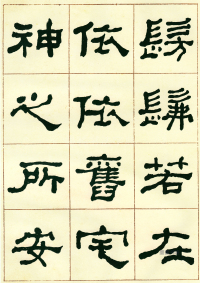 髣髴若在
依依舊宅
神之所安